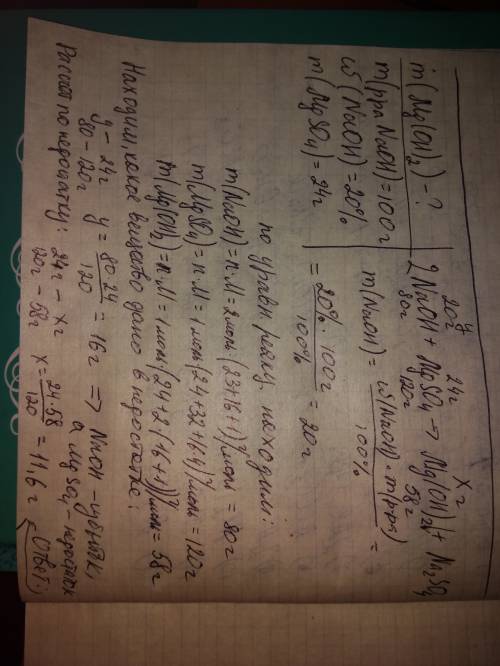 m(Mg(OH)2) - ?
m(рра NaOH) = 100г
ω(NaOH) = 20%
m(MgSO4) = 24г
20г y 24г Xг
2NaOH + MgSO4 → Mg(OH)2↓ + Na2SO4
80г 120г 58г
m(NaOH) = ω(NaOH)·m(рра) / 100% =
= 20%·100г / 100% = 20г
по уравн. реакц. находим:
m(NaOH) = n·M = 2моль·(23+16+1)г/моль = 80г
m(MgSO4) = n·M = 1моль·(24+32+16·4)г/моль = 120г
m(Mg(OH)2) = n·M = 1моль·(24+2·(16+1))г/моль = 58г
Находим, какое вещество дано в недостатке:
y - 24г
80 - 120г
y = 80·24 / 120 = 16г => NaOH - избыток,
а MgSO4 - недостаток
Рассчёт по недостатку:
24г - xг
120г - 58г
x = 24·58 / 120 = 11,6г ← Ответ.